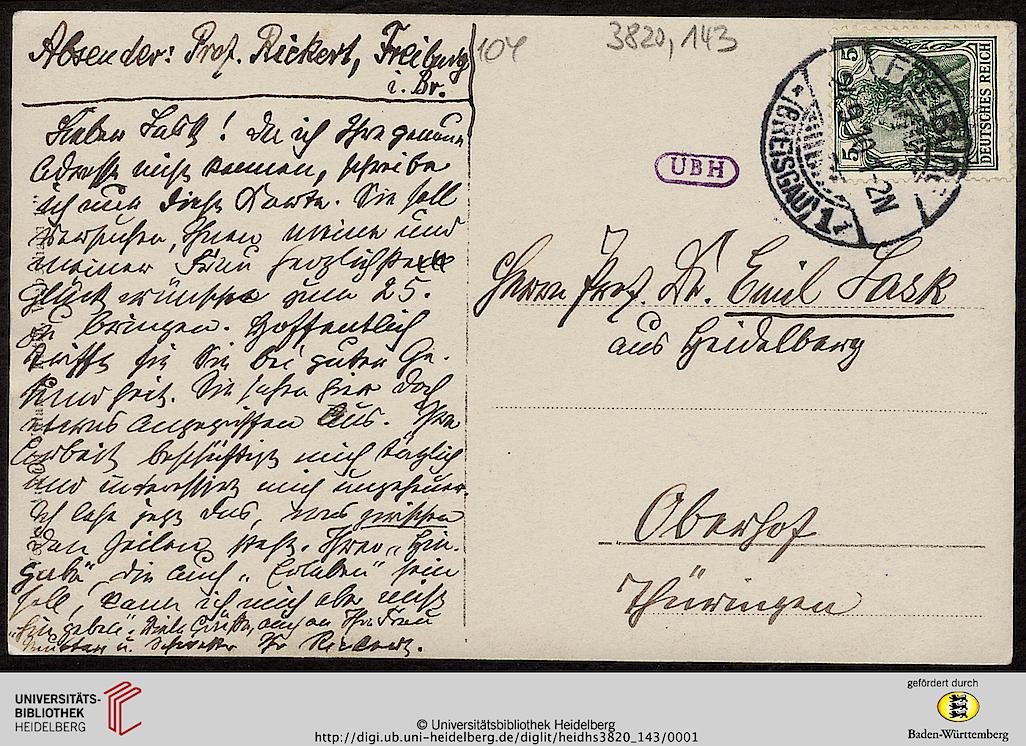 Absender: Prof. Rickert, Freiburg
i. Br.
104
3820,143
Lieber Lask! Da ich Ihre genaue
Adresse nicht kenne, schreibe
ich nur diese Karte. Sie soll
versuchen, Ihnen meine und
meiner Frau herzlichste
Glückwünsche zum 25.
zu bringen. Hoffentlich
trifft sie Sie bei guter Ge-
sundheit. Sie sahen hier doch
etwas angegriffen aus. Ihre
Arbeit beschäftigt mich täglich
und interessirt mich ungeheuer.
Ich lese jetzt das, was zwischen
den Zeilen steht. Ihrer „Hin-
gabe“, die auch „Erleben“ sein
soll, kann ich mich aber nicht
„hingeben“. Viele Grüße, auch an Ihre Frau
Mutter u. Schwester Ihr Rickert.
UBH
DEUTSCHES REICH
5
5
FREIBURG
(BREISGAU)
1
2N
Herrn Prof. Dr. Emil Lask
aus Heidelberg
Oberhof
Thüringen
UNIVERSITÄTS-
BIBLIOTHEK
HEIDELBERG
© Universitätsbibliothek Heidelberg
http://digi.ub.uni-heidelberg.de/diglit/heidhs3820_143/0001
gefördert durch
Baden-Württemberg